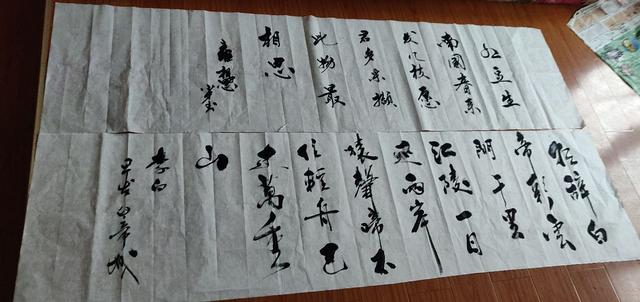 红豆生
南國春来
发几枝愿
君多采擷
此物最
相思
朝辞白
帝彩雲
間千里
江陵一日
還两岸
猿聲啼不
住輕舟已
过萬重
山
李白
早发白帝城